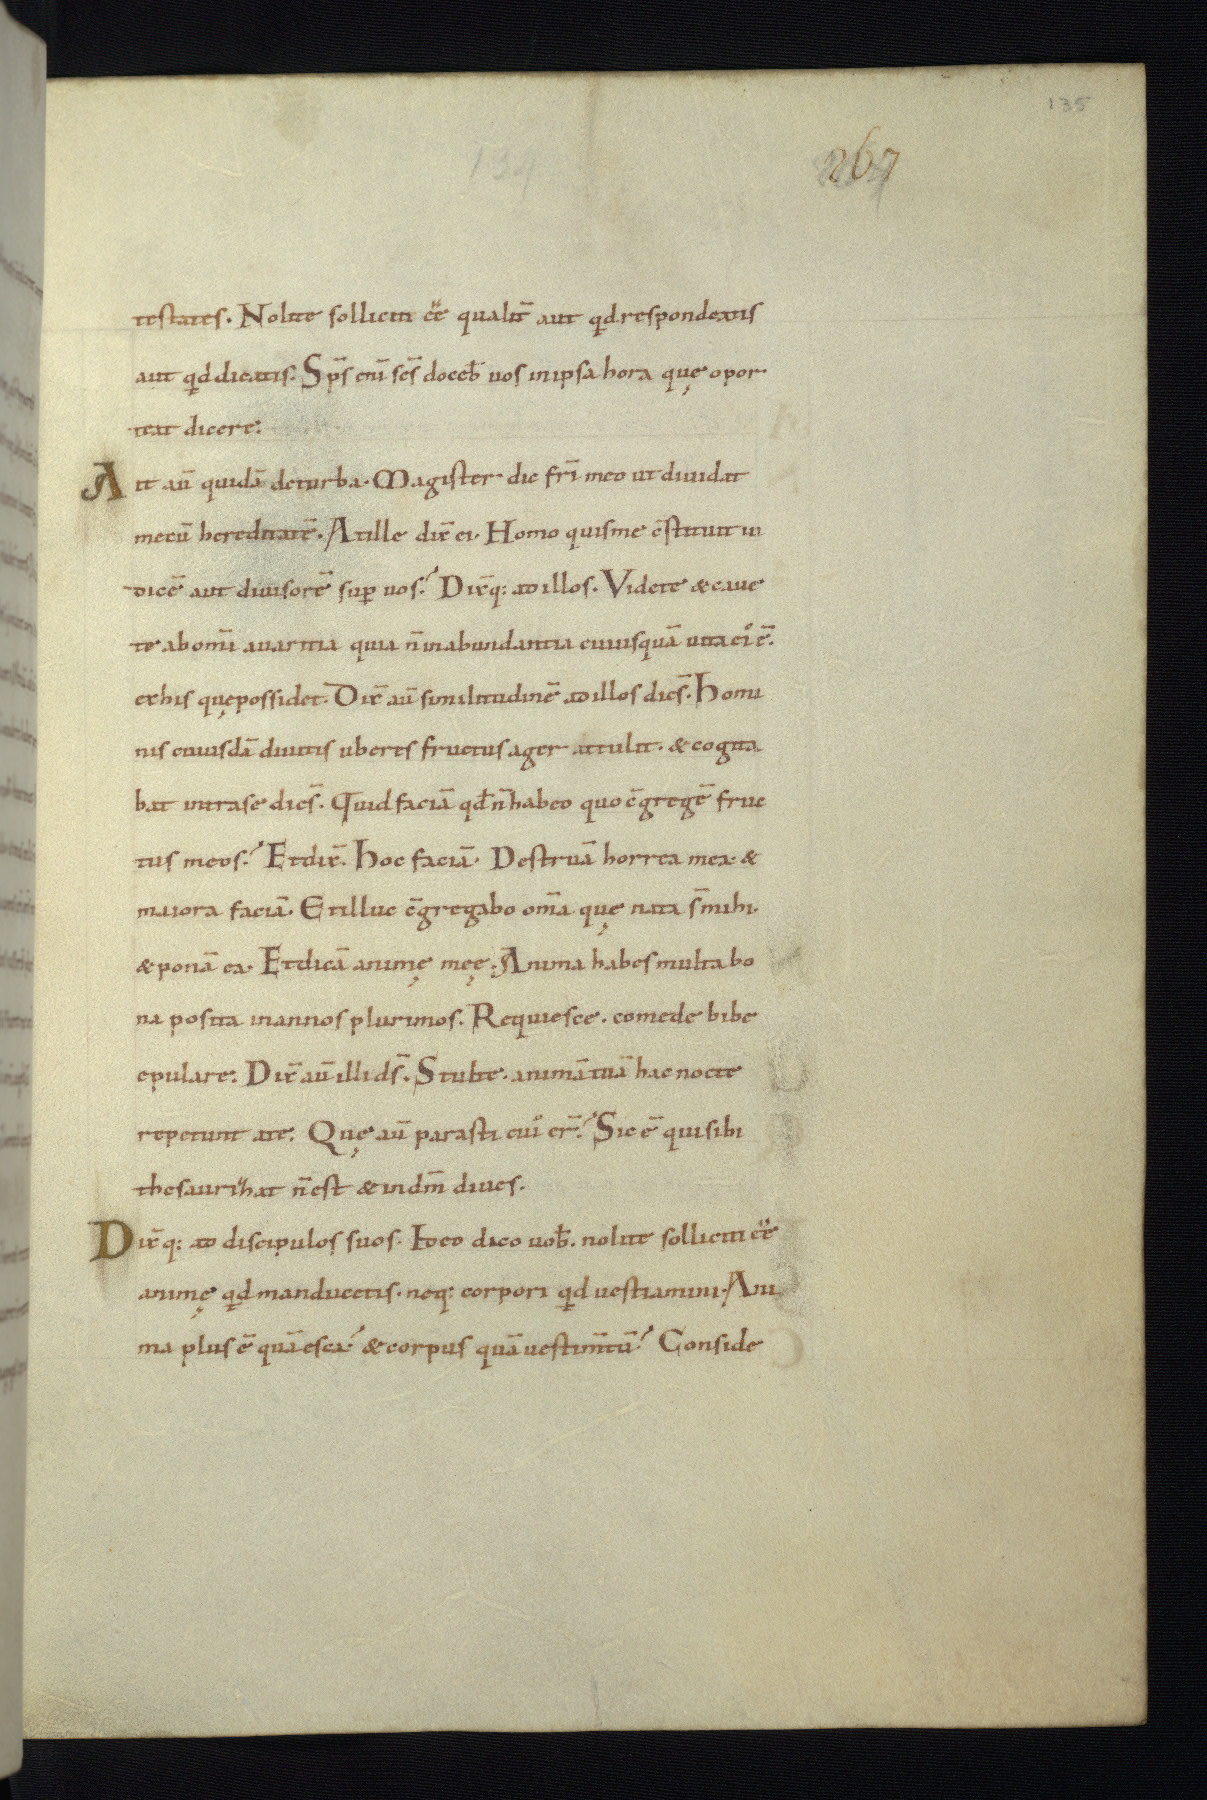 135
267
134
testates. Nolite solliciti ee̅ qualit̅ aut qd respondeatis
aut qd dicatis. Sp̅s eni̅ sc̅s doceb̅ uos in ipsa hora quę opor
teat dicere.
Ait au̅ quida̅ de turba. Magister dic fr̅i meo ut diuidat
mecu̅ hereditate̅. At ille dix̅ ei. Homo quis me c̅stituit iu
dice̅ aut diuisore̅ sup̱ uos? Dix̅q: ad illos. Videte & caue
te ab om̅i auaritia quia n̅ in abundantia cuiusqua̅ uita ei᾽ e̅.
ex his quę possidet. Dix̅ au̅ similitudine̅ ad illos dice̅s. Homi
nis cuiusda̅ diuitis uberes fructus ager attulit. & cogita
bat intra se dice̅s. Quid facia̅ qd̅ n̅ habeo quo c̅grege̅ fruc
tus meos? Et dix̅. Hoc facia̅. Destrua̅ horrea mea & 
maiora facia̅. Et illuc c̅gregabo om̅a quę nata s̅ mihi.
& pona̅ ea. Et dica̅ animę męę. Anima habes multa bo
na posita in annos plurimos. Requiesce. comede bibe
epulare. Dix̅ au̅ illi d̅s. Stulte. anima̅ tua̅ hac nocte
repetunt a te. Quę au̅ parasti cui᾽ er̅? Sic e̅ qui sibi
thesaurihat n̅ est & in dm̅ diues.
Dix̅q: ad discipulos suos. Ideo dico uob̅. nolite solliciti ee̅
animę qd manducetis. neq: corpori qd uestiamini. Ani
ma plus e̅ qua̅ esca? & corpus qua̅ uestim̅tu̅? Conside